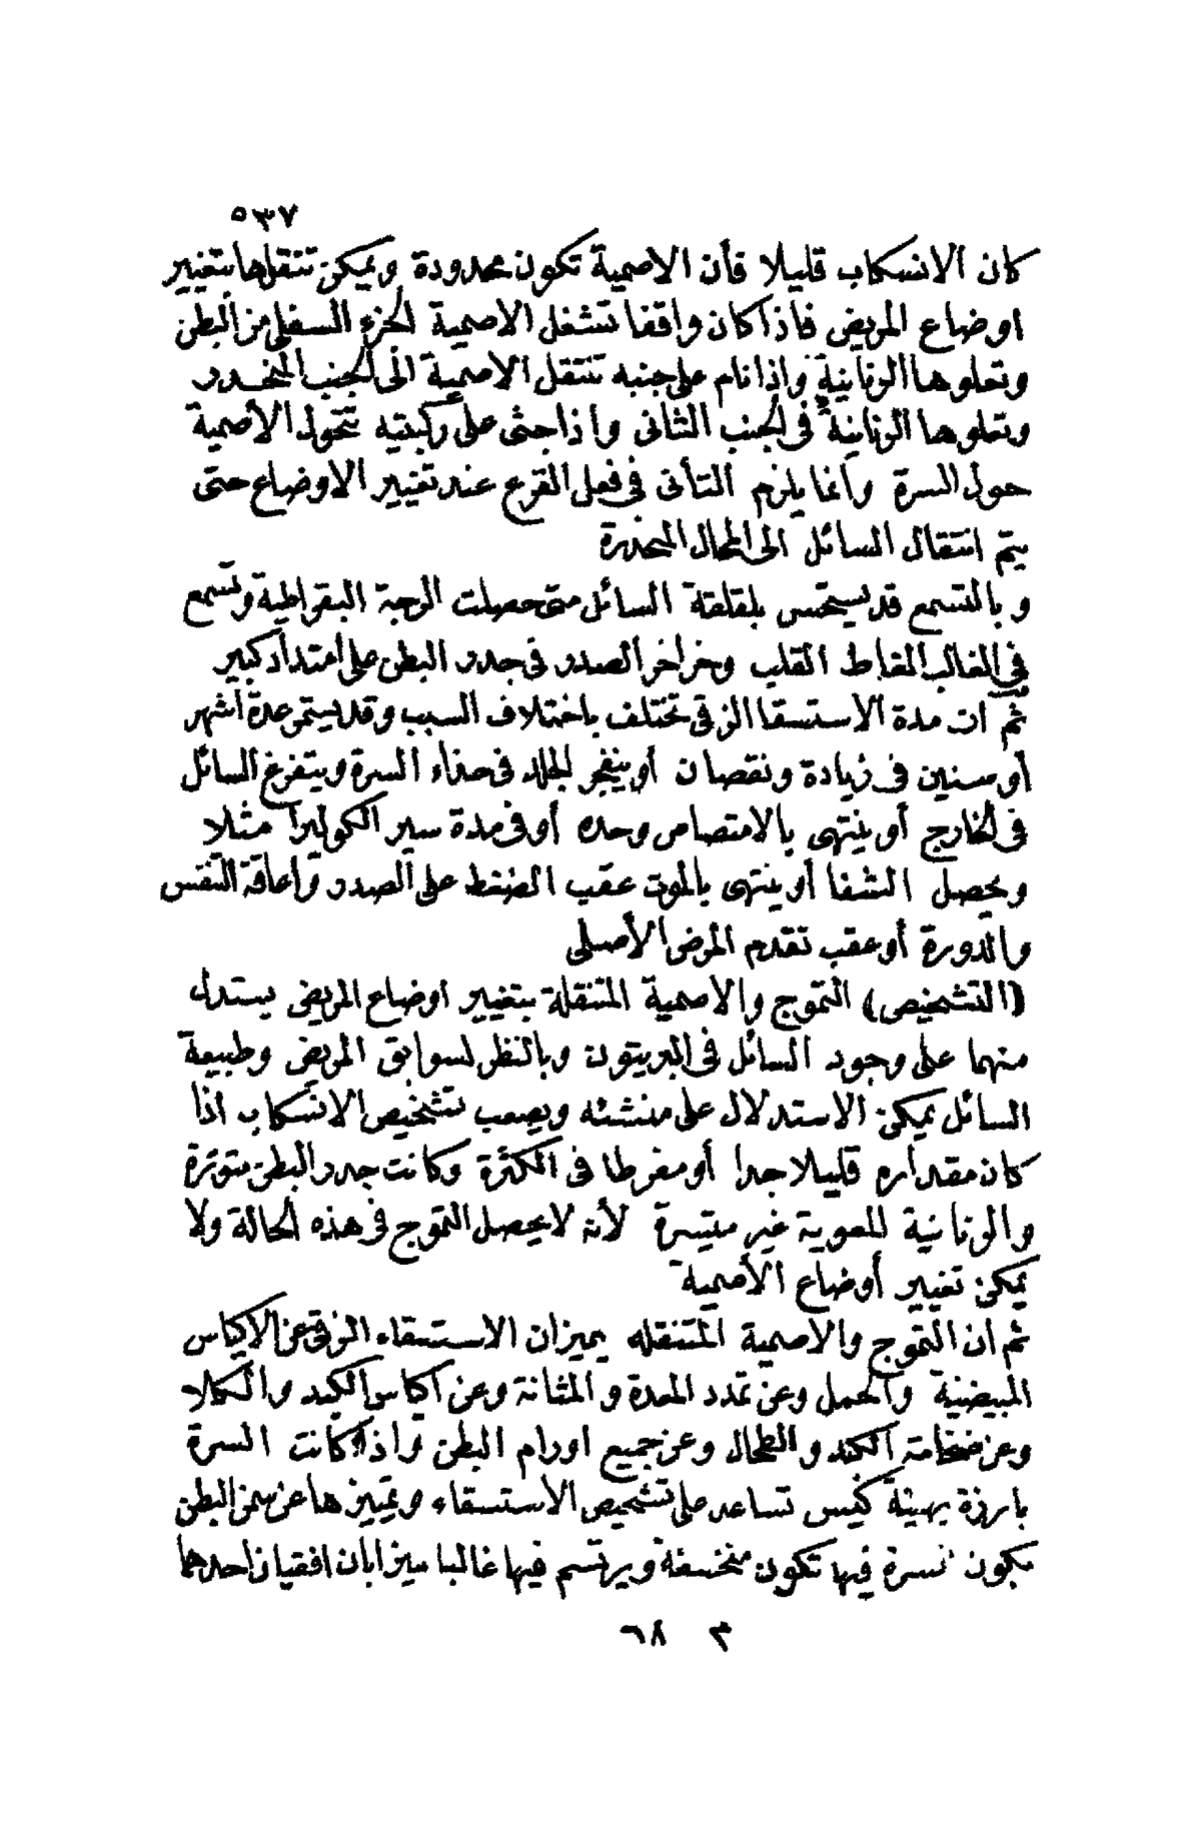 ٥٣٧
كان الانسكاب قليلا فأن الاصمية تكون محدودة ويمكن تنقلها بتغيير
اوضاع المريض فاذا كان واقفا تشغل الاصمية الجزء السفلى من البطن
وتعلوها الرنانية واذا نام على جنبه تنتقل الاصمية الى الجنب المنحدر
وتعلوها الرنانية فى الجنب الثانى واذا جثى على ركبتيه تتحول الأصمية
حول السرة وانما يلزم التأنى فى فعل القرع عند تغيير الاوضاع حتى
يتم انتقال السائل الى المحال المنحدرة
وبالتسمع قد يستحس بلقلقة السائل متى حصلت الرجة البقراطية وتسمع
فى الغالب الغاط القلب وخراخر الصدر فى جدر البطن على امتداد كبير
ثم ان مدة الاستسقا الزقى تختلف باختلاف السبب وقد يستمر عدة اشهر
أو سنين فى زيادة ونقصان أو ينفجر الجلد فى حذاء السرة ويتفرغ السائل
فى الخارج أو ينتهى بالامتصاص وحده أو فى مدة سير الكوليرا مثلا
ويحصل الشفا أو ينتهى بالموت عقب الضغط على الصدر واعاقة التنفس
والدورة أو عقب تقدم المرض الأصلى
(التشخيص) التموج والاصمية المتنقلة بتغيير اوضاع المريض يستدل
منهما على وجود السائل فى البريتون وبالنظر لسوابق المريض وطبيعة
السائل يمكن الاستدلال على منشئه ويصعب تشخيص الانسكاب اذا
كان مقداره قليلا جدا أو مفرطا فى الكثرة وكانت جدر البطن متوترة
والرنانية المعوية غير متيسرة لأنه لا يحصل التموج فى هذه الحالة ولا
يمكن تغيير أوضاع الأصمية
ثم أن التموج والاصمية المتنقله يميزان الاستسقاء الزقى عن الاكياس
المبيضية والحمل وعن تمدد المعدة والمثانة وعن اكياس الكبد والكلا
وعن ضخامة الكبد والطحال وعن جميع اورام البطن واذا كانت السرة
بارزة بهيئة كيس تساعد على تشخيص الاستسقاء وتمييزها عن سمن البطن
بكون السرة فيها تكون منخسفة ويرتسم فيها غالبا ميزابان افقيان احدهما
م ٦٨